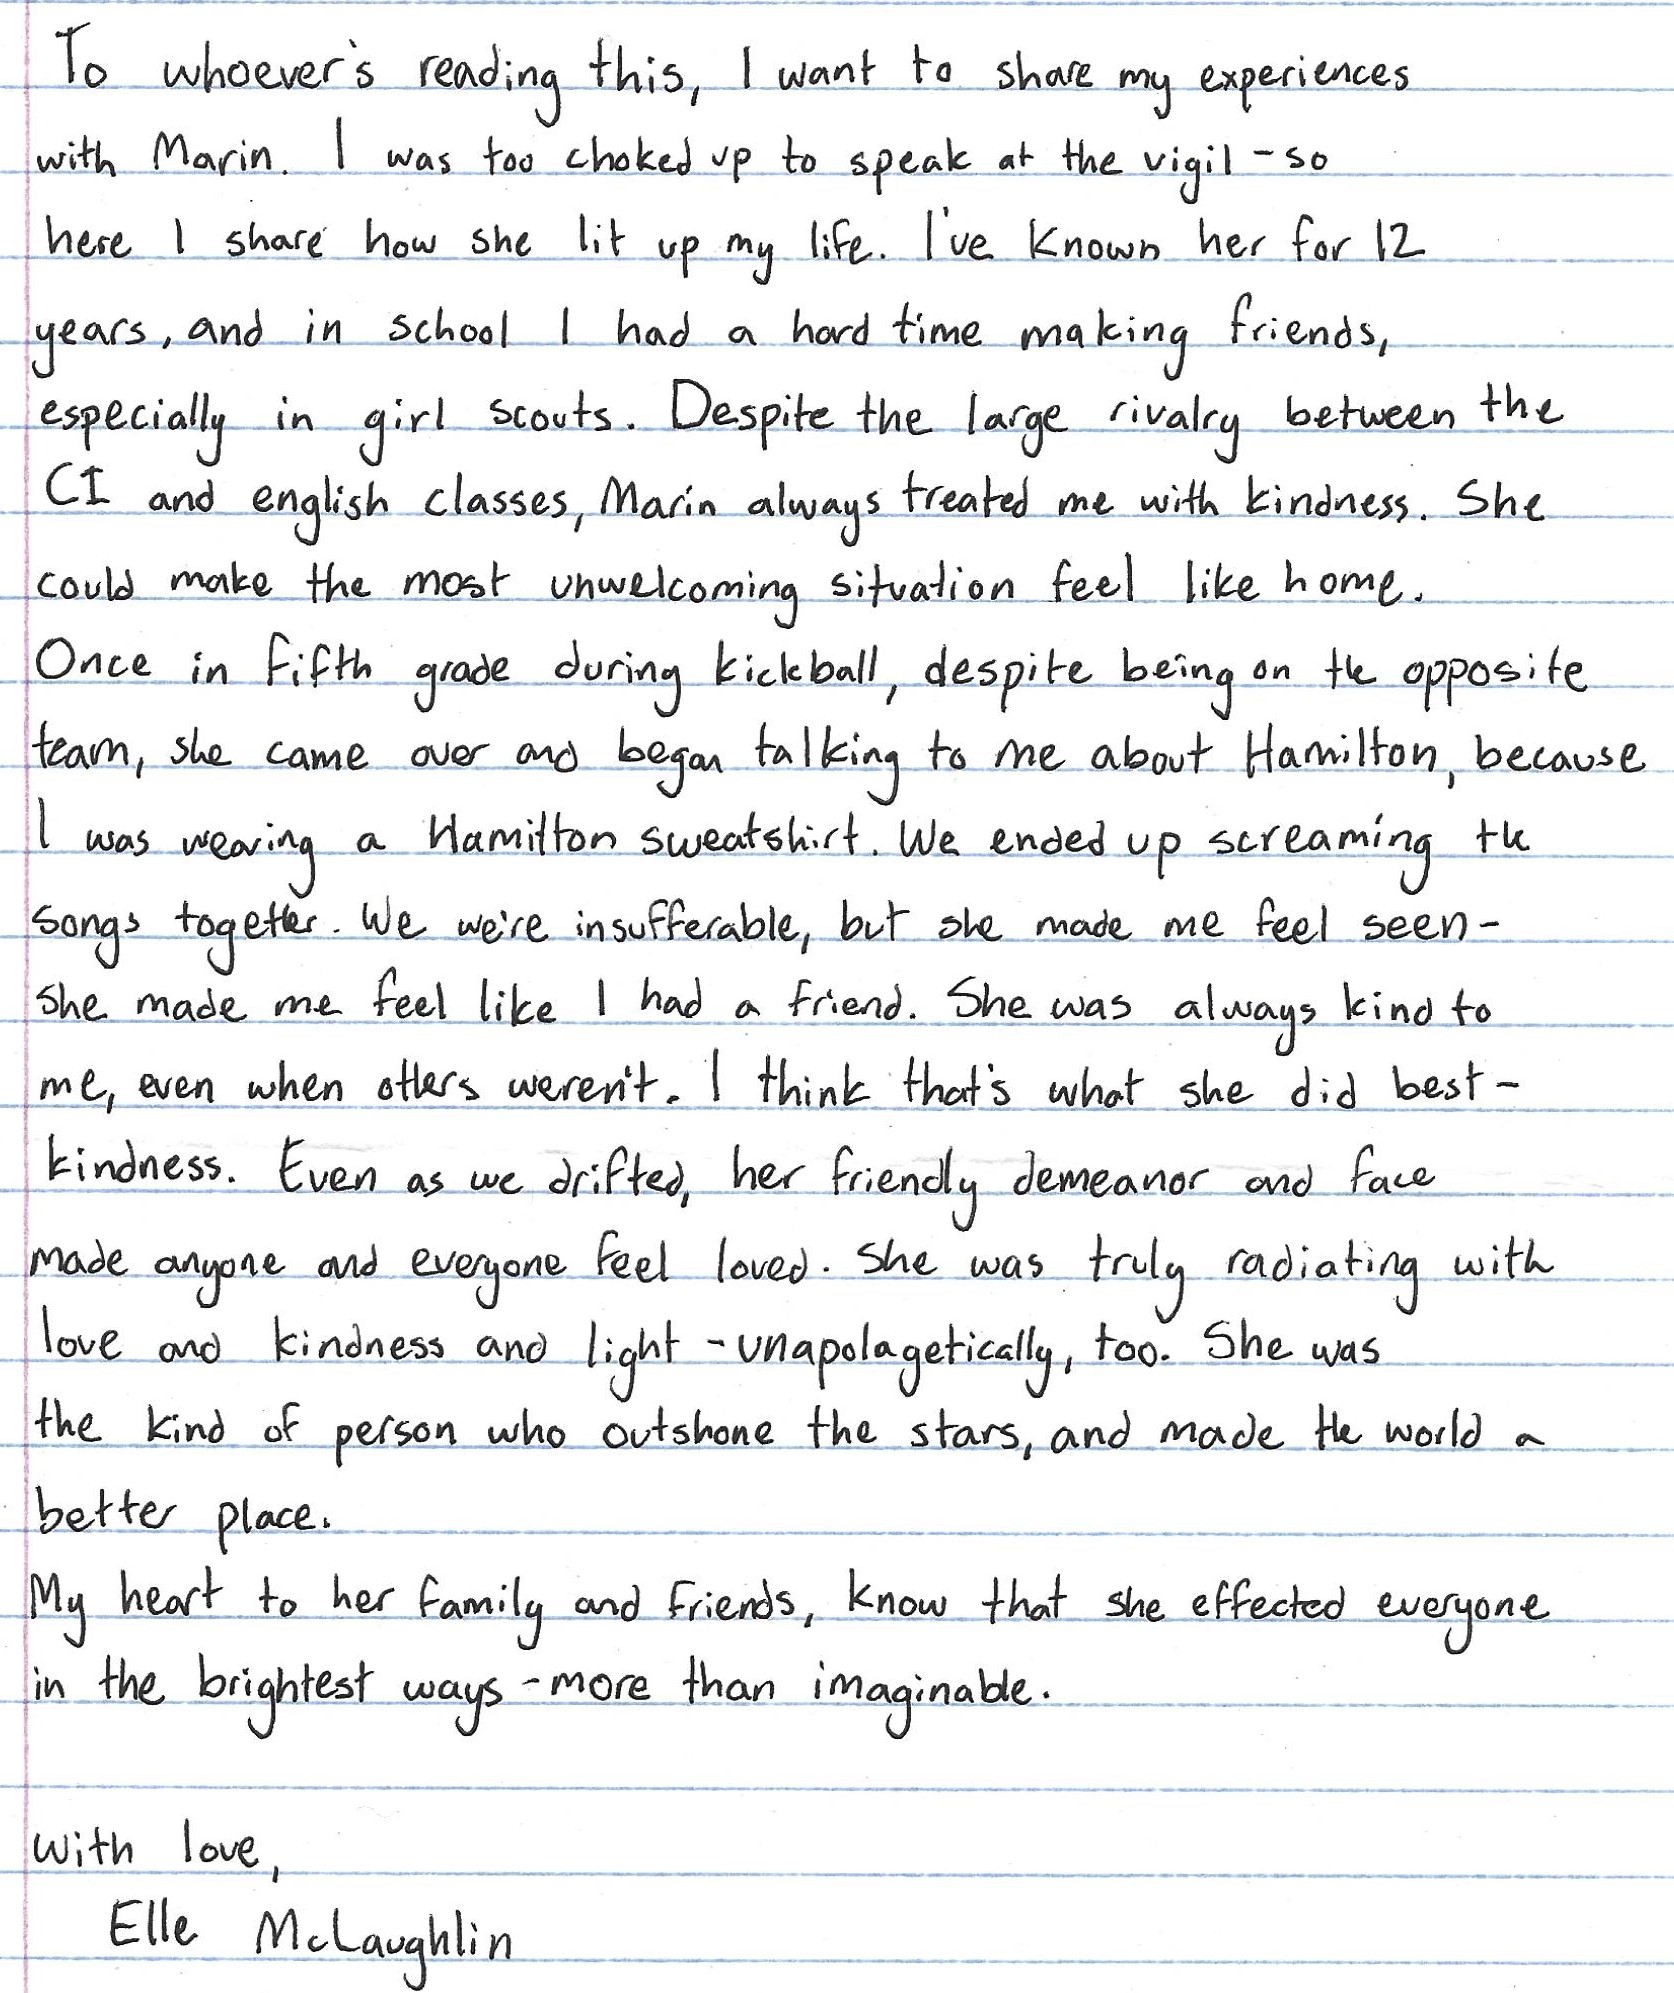 To whoever's reading this, I want to share my experiences
with Marin. I was too choked up to speak at the vigil - so
here I share how she lit up my life. I've known her for 12
years, and in school I had a hard time making friends,
especially in girl scouts. Despite the large rivalry between the
CI and english classes, Marin always treated me with kindness. She
could make the most unwelcoming situation feel like home.
Once in fifth grade during kickball, despite being on the opposite
team, she came over and began talking to me about Hamilton, because
I was wearing a Hamilton sweatshirt. We ended up screaming the
songs together. We we're insufferable, but she made me feel seen -
she made me feel like I had a friend. She was always kind to
me, even when others weren't. I think that's what she did best -
kindness. Even as we drifted, her friendly demeanor and face
made anyone and everyone feel loved. She was truly radiating with
love and kindness and light - unapolagetically, too. She was
the kind of person who outshone the stars, and made the world a
better place.
My heart to her family and friends, know that she effected everyone
in the brightest ways - more than imaginable.
With love,
Elle McLaughlin